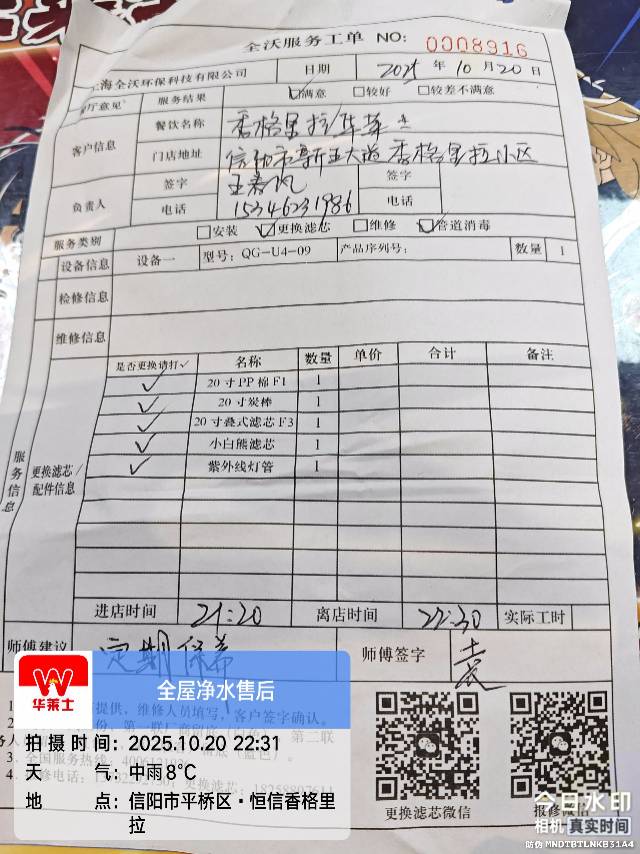 全沃服务工单 NO: 0008916
上海全沃环保科技有限公司 日期 2025 年 10 月 20 日
餐厅意见 服务结果 ☑满意 □较好 □较差不满意
客户信息 餐饮名称 香格里拉/华莱士
门店地址 信阳市新五大道香格里拉小区
负责人 签字 签字
电话 15346231986 电话
服务类别 □安装 ☑更换滤芯 □维修 ☑管道消毒
设备信息 设备一 型号: QG-U4-09 产品序列号: 数量 1
检修信息
维修信息
服务信息
更换滤芯/配件信息
是否更换请打✓ 名称 数量 单价 合计 备注
✓ 20寸PP棉F1 1
✓ 20寸炭棒 1
✓ 20寸叠式滤芯F3 1
✓ 小白熊滤芯 1
✓ 紫外线灯管 1
进店时间 21:20 离店时间 22:30 实际工时
师傅建议 定期保养 师傅签字 袁
提供，维修人员填写，客户签字确认。
更换滤芯微信 报修微信
华莱士
全屋净水售后
拍摄时间: 2025.10.20 22:31
天气: 中雨8℃
地点: 信阳市平桥区·恒信香格里
拉
今日水印
相机 真实时间
防伪 MNDTBTLNKB31A4